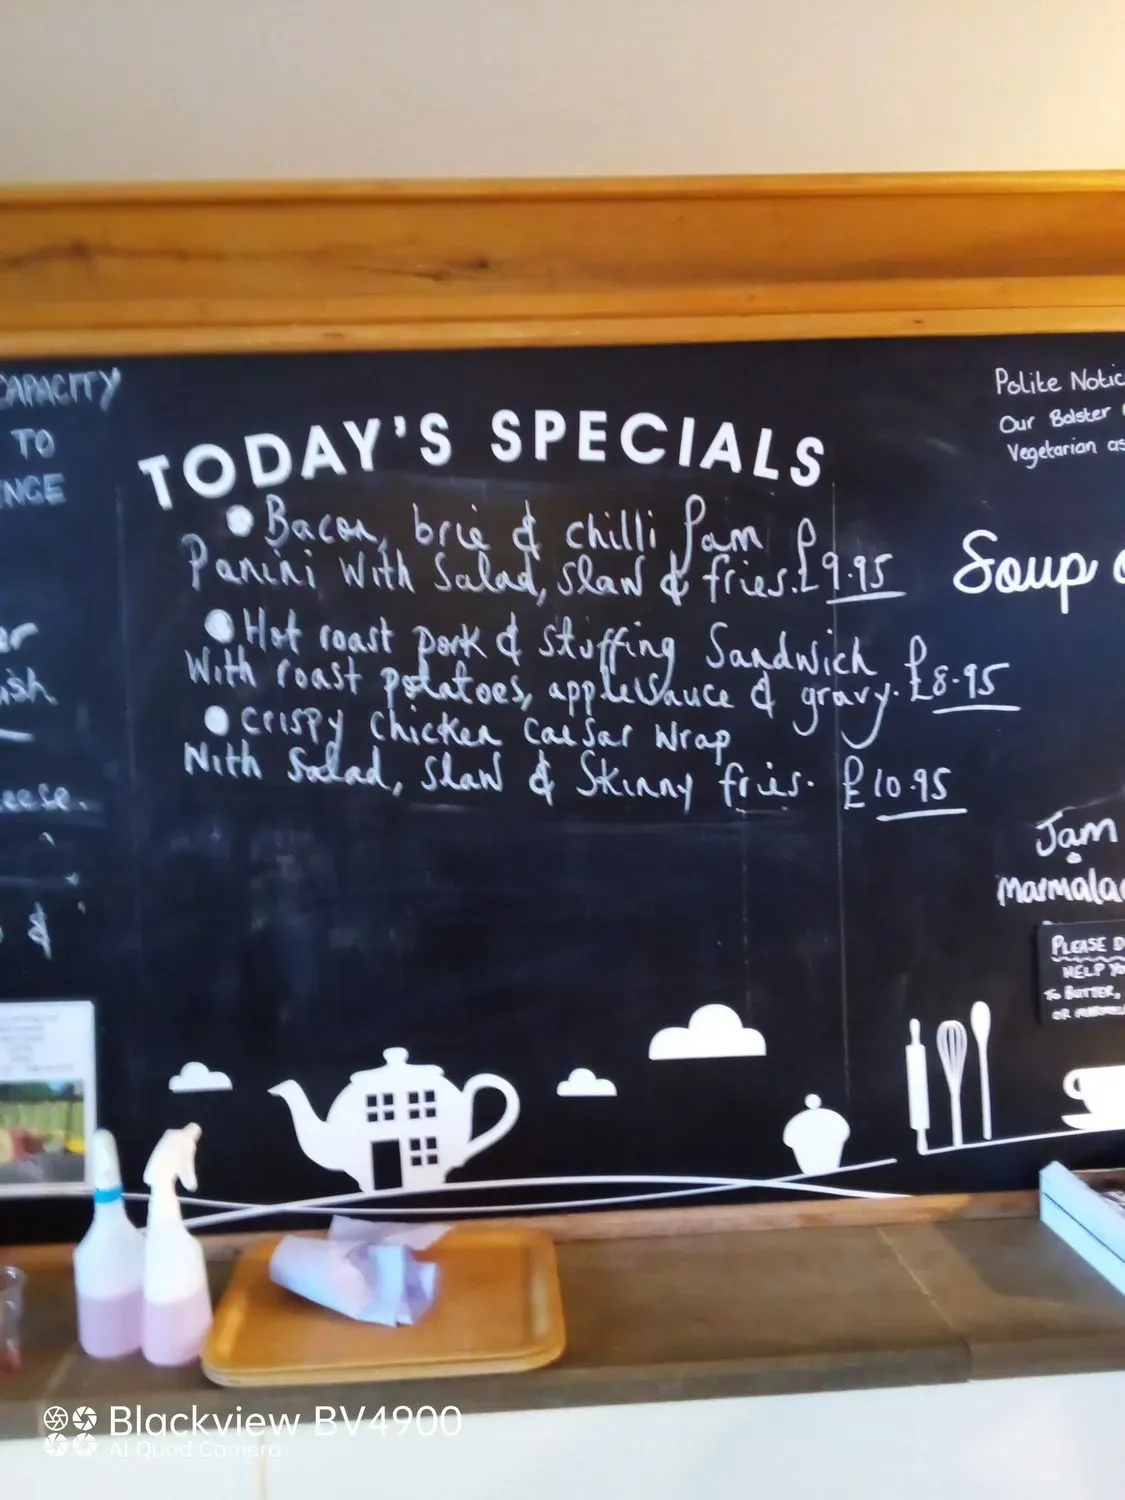 CAPACITY
TO
TODAY'S SPECIALS
Bacon, brie & chilli Jam
Panini With Salad, slaw & fries. £9.95
Hot roast pork & stuffing Sandwich
With roast potatoes, applesauce & gravy. £8.95
Crispy chicken caesar wrap
With Salad, slaw & Skinny fries. £10.95
Polite Notic
Our Bolster
Vegetarian as
Soup
Jam
Marmala
PLEASE D
HELP YO
TO BUTTER,
OR MARMEL
Blackview BV4900
AI Quad Camera